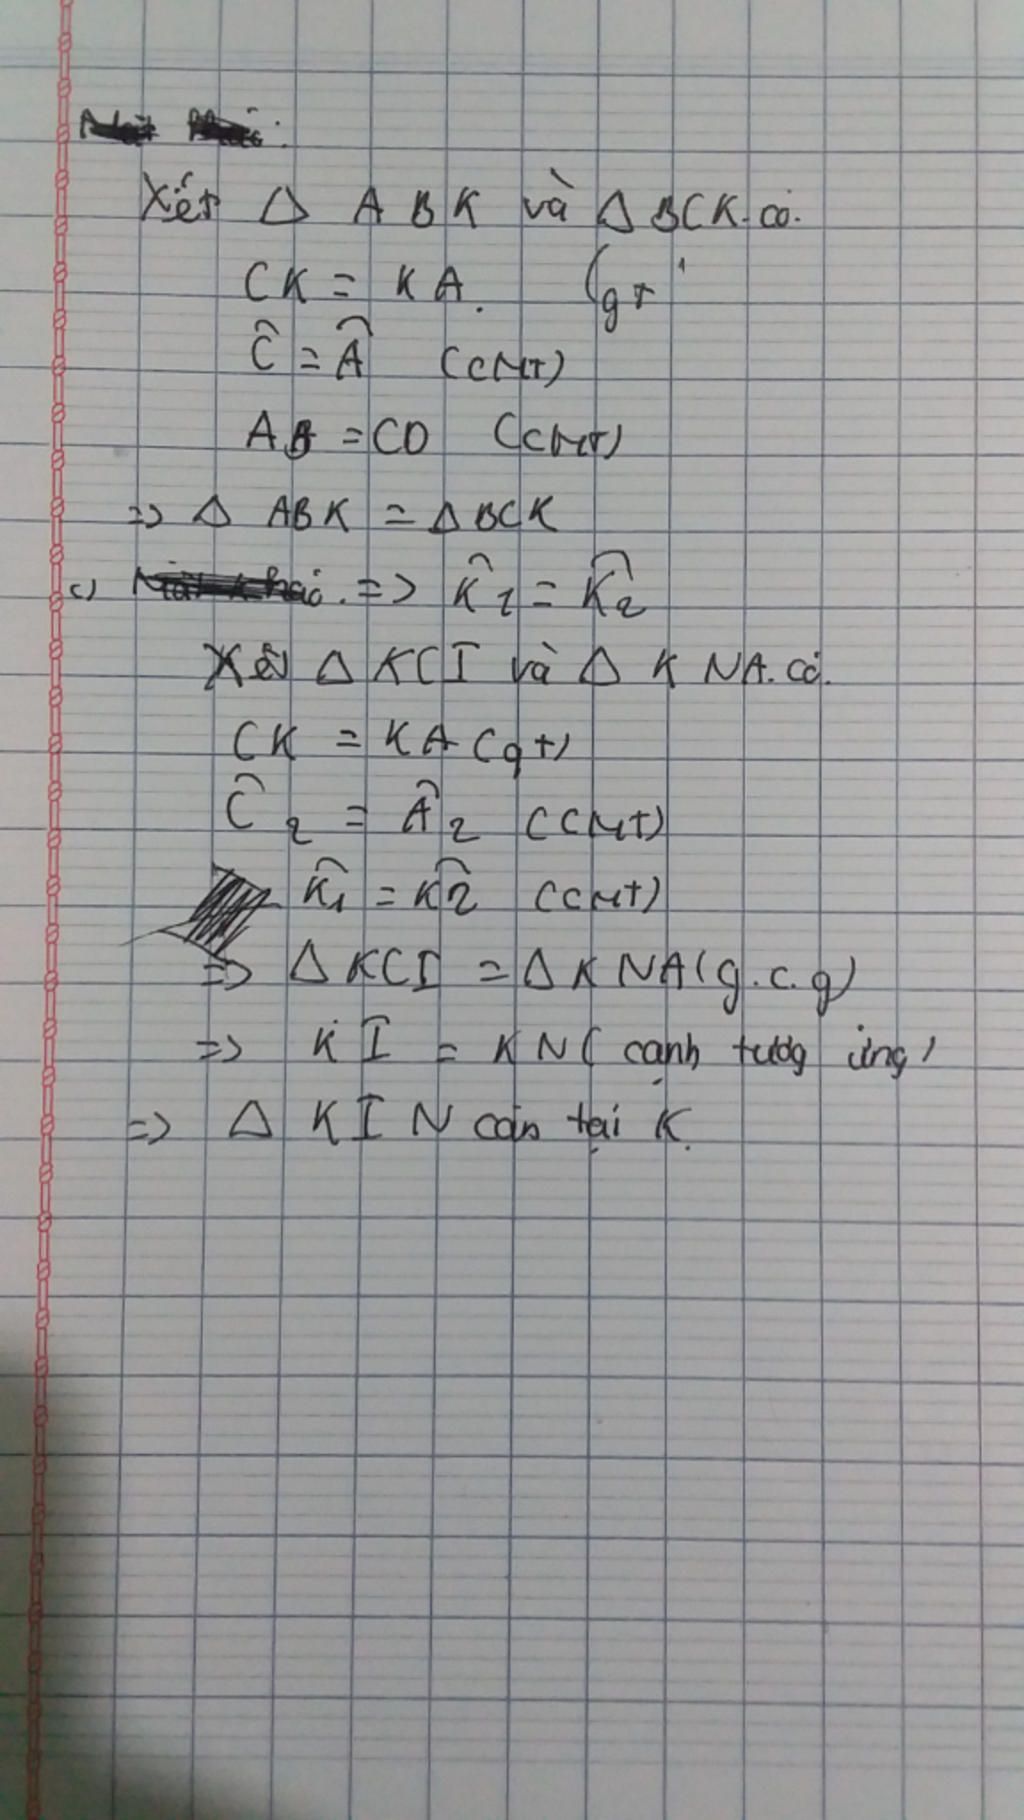 Xét Δ ABK và Δ BCK có.
CK = KA. (gt
Ĉ = Â (cmt)
AB = CD (cmt)
=> Δ ABK = Δ BCK
c) => K̂1 = K̂2
Xét Δ KCI và Δ KNA. có.
CK = KA (gt)
Ĉ2 = Â2 (cmt)
K̂1 = K̂2 (cmt)
=> Δ KCI = Δ KNA (g.c.g)
=> KI = KN ( cạnh tương ứng)
=> Δ KIN cân tại K.